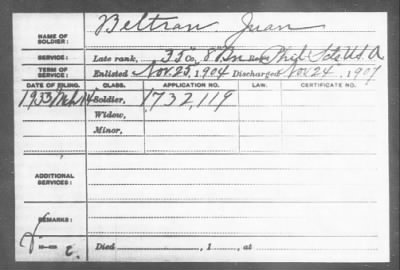 NAME OF SOLDIER: Beltran, Juan
SERVICE: Late rank, 35" Co., 8" Bn Phil. Scts U.S.A
TERM OF SERVICE: Enlisted Nov. 25, 1904 Discharged Nov. 24, 1907
DATE OF FILING. CLASS. APPLICATION NO. LAW. CERTIFICATE NO.
1933 Mch 14 Soldier, 1732,119
Widow,
Minor,
ADDITIONAL SERVICES:
REMARKS:
Died , 1 , at